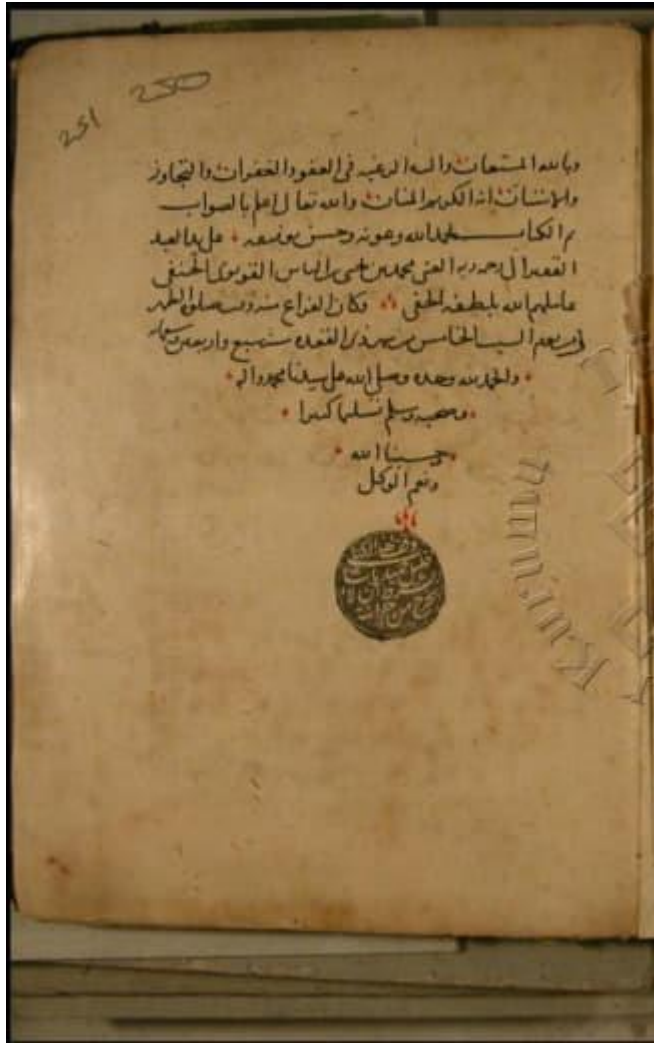 250
251
وبالله المستعان واليه الرغبه فى العفو والغفران والتجاوز
والامتنان انه الكريم المنان والله تعالى اعلم بالصواب
تم الكتاب بحمد الله وعونه وحسن توفيقه على يد العبد
الفقير الى رحمة ربه الغنى محمد بن الياس القونوى الحنفى
عاملهم الله بلطفه الخفى وكان الفراغ منه وقت صلوة الظهر
من يوم السبت الخامس من شهر ذى القعده سنة سبع واربعين
والحمد لله وحده وصلى الله على سيدنا محمد واله
وصحبه وسلم تسليما كثيرا
وحسبنا الله
ونعم الوكيل